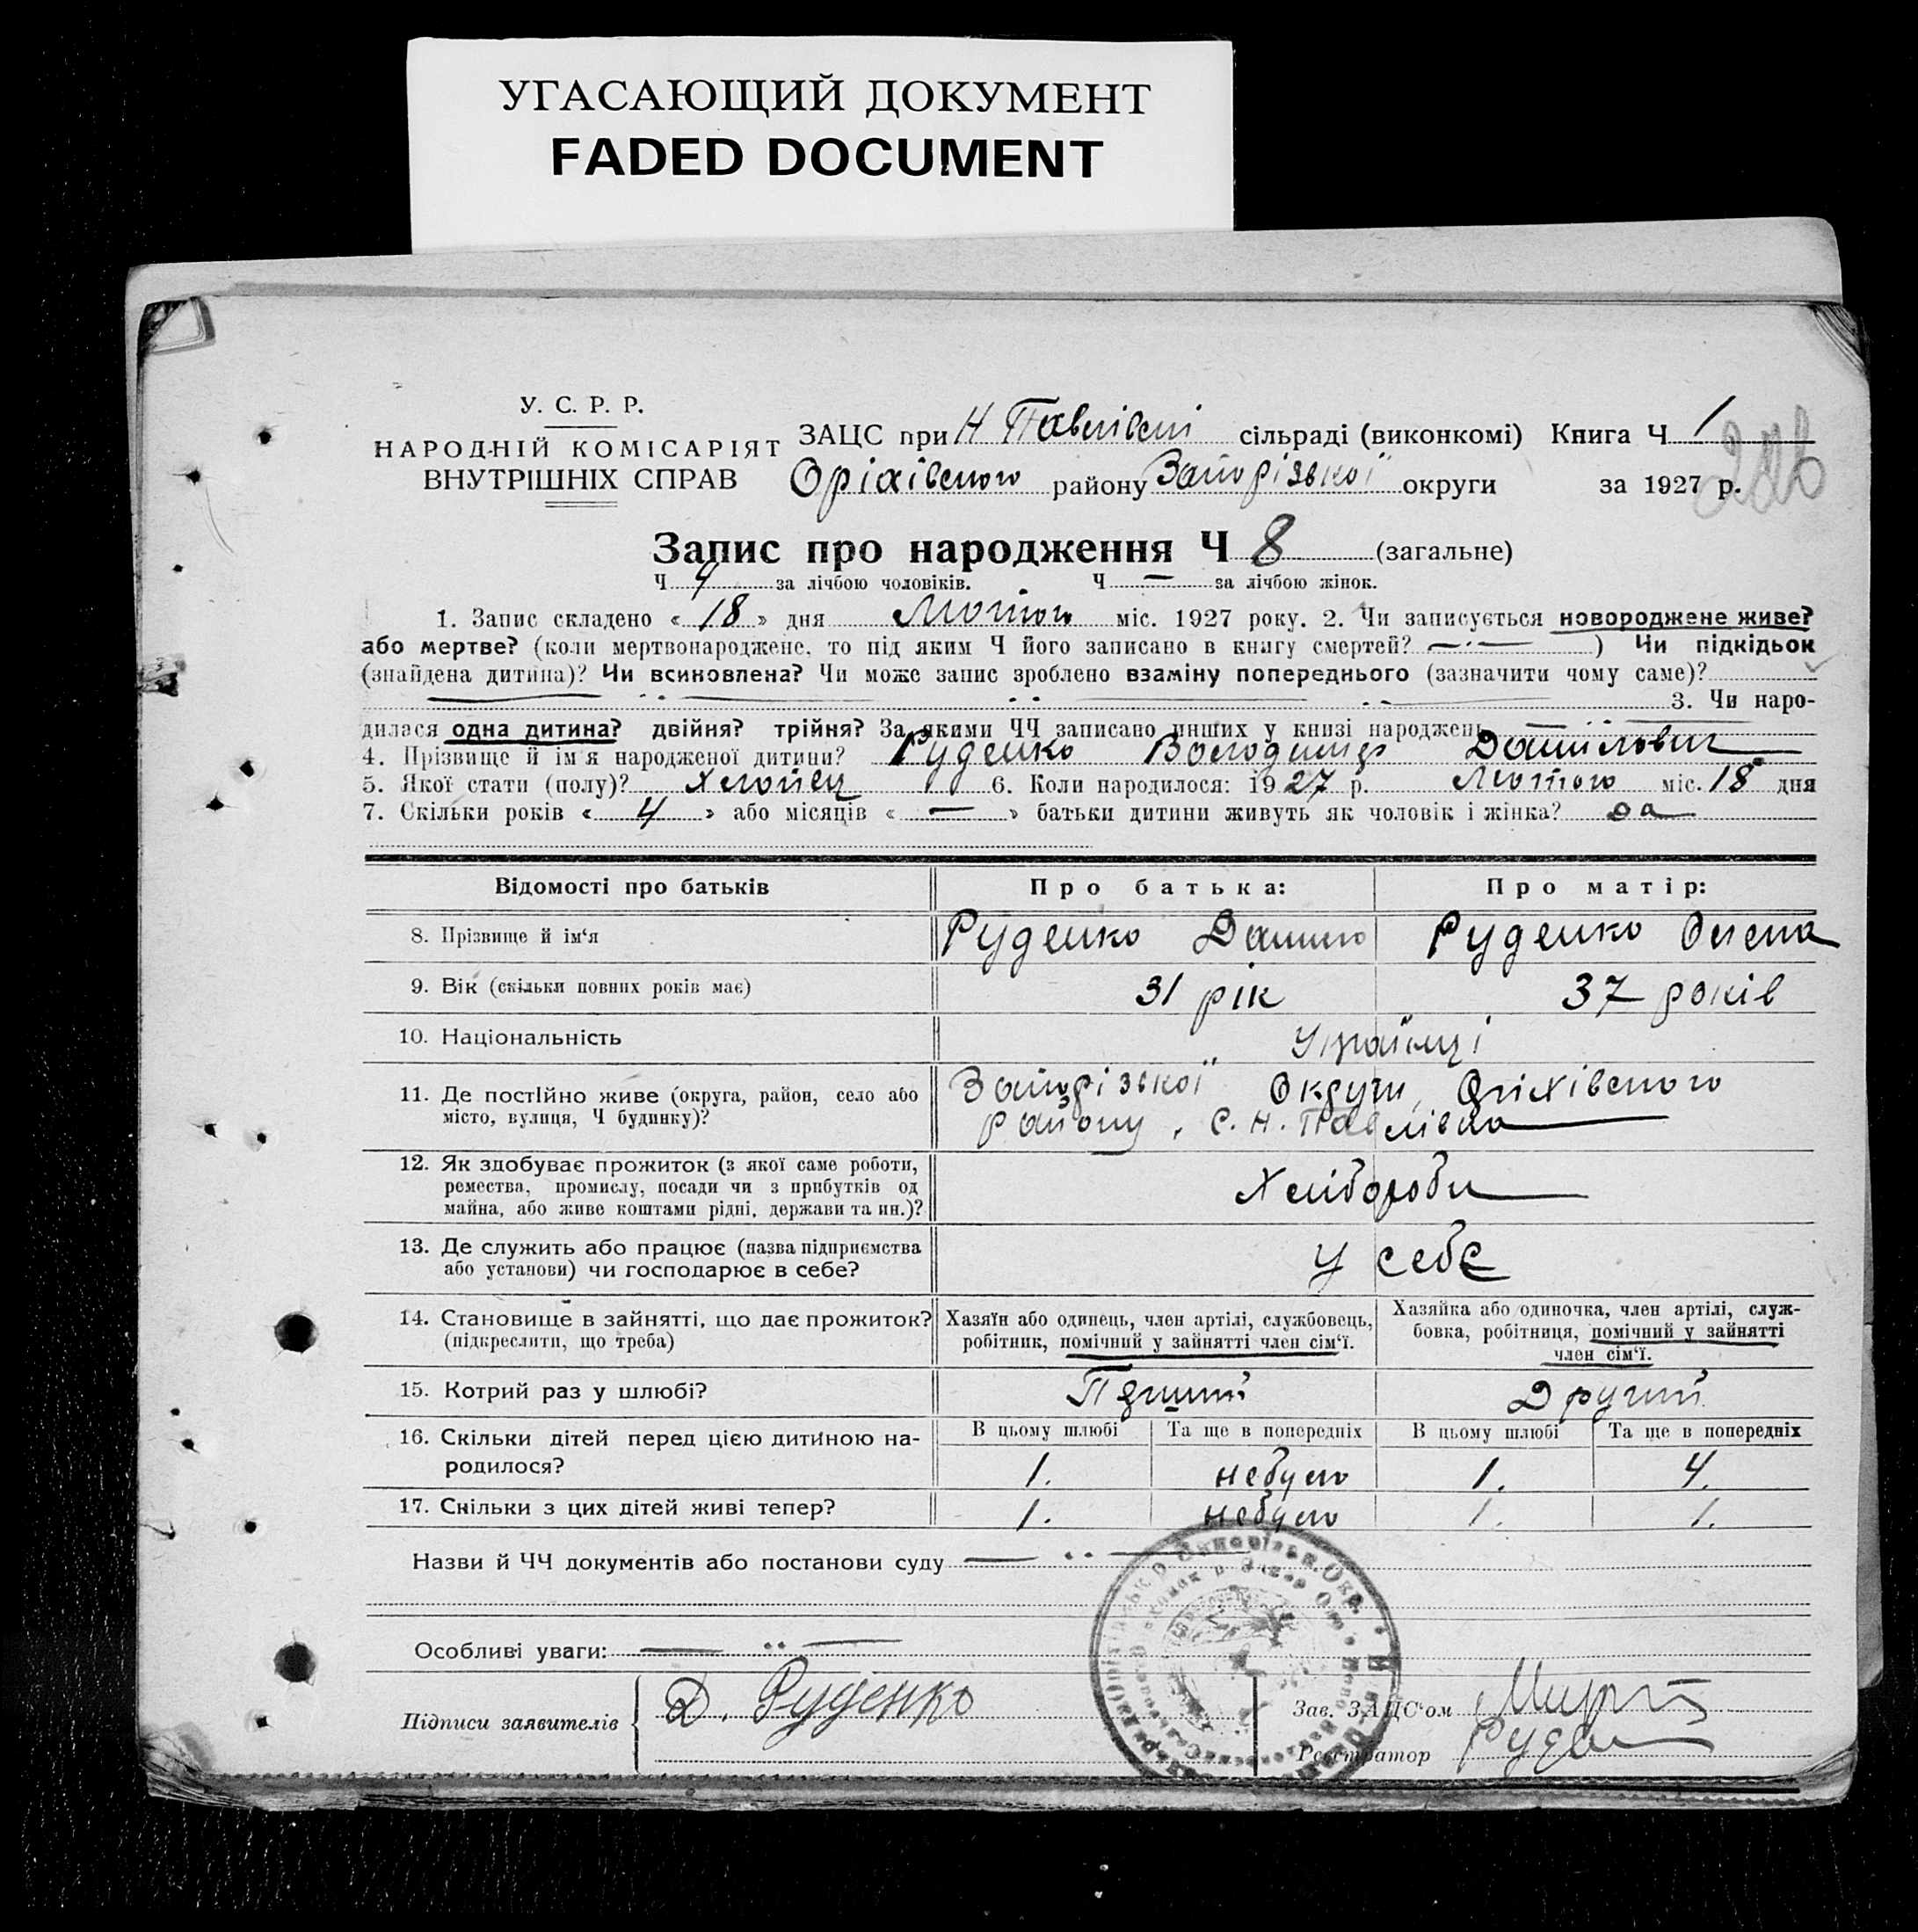 УГАСАЮЩИЙ ДОКУМЕНТ
FADED DOCUMENT
У. С. Р. Р.
НАРОДНІЙ КОМІСАРІЯТ
ВНУТРІШНІХ СПРАВ
ЗАЦС при Н Павлівскі сільраді (виконкомі) Книга Ч 1
Оріхівського району Запорізької округи за 1927 р.
Запис про народження Ч 8 (загальне)
Ч 4 за лічбою чоловіків. Ч — за лічбою жінок.
1. Запис складено « 18 » дня Лютого міс. 1927 року. 2. Чи записується новороджене живе?
або мертве? (коли мертвонароджене, то під яким Ч його записано в книгу смертей? — ) Чи підкідьок
(знайдена дитина)? Чи всиновлена? Чи може запис зроблено взаміну попереднього (зазначити чому саме)?
3. Чи наро-
дилася одна дитина? двійня? трійня? За якими ЧЧ записано инших у книзі народжень
4. Прізвище й ім'я народженої дитини? Руденко Володимир Данилович
5. Якої статі (полу)? Хлопец 6. Коли народилося: 1927 р. Лютого міс. 18 дня
7. Скільки років « 4 » або місяців « — » батьки дитини живуть як чоловік і жінка? да
Відомості про батьків Про батька: Про матір:
8. Прізвище й ім'я Руденко Данило Руденко Олена
9. Вік (скільки повних років має) 31 рік 37 років
10. Національність Українці
11. Де постійно живе (округа, район, село або Запорізької Округи, Оріхівського
місто, вулиця, Ч будинку)? району, с. Н. Павлівка
12. Як здобуває прожиток (з якої саме роботи,
ремества, промислу, посади чи з прибутків од Хлібороби
майна, або живе коштами рідні, держави та ин.)?
13. Де служить або працює (назва підприємства у себе
або установи) чи господарює в себе?
14. Становище в зайнятті, що дає прожиток? Хазяїн або одинець, член артілі, службовець, Хазяйка або одиночка, член артілі, служ-
(підкреслити, що треба) робітник, помічний у зайнятті член сім'ї. бовка, робітниця, помічний у зайнятті
член сім'ї.
15. Котрий раз у шлюбі? Перший Другий
16. Скільки дітей перед цією дитиною на- В цьому шлюбі Та ще в попередніх В цьому шлюбі Та ще в попередніх
родилося? 1. небуло 1. 4.
17. Скільки з цих дітей живі тепер? 1. небуло 1. 1.
Назви й ЧЧ документів або постанови суду
Особливі уваги:
Підписи заявителів Д. Руденко Зав. ЗАЦС'ом
Реєстратор